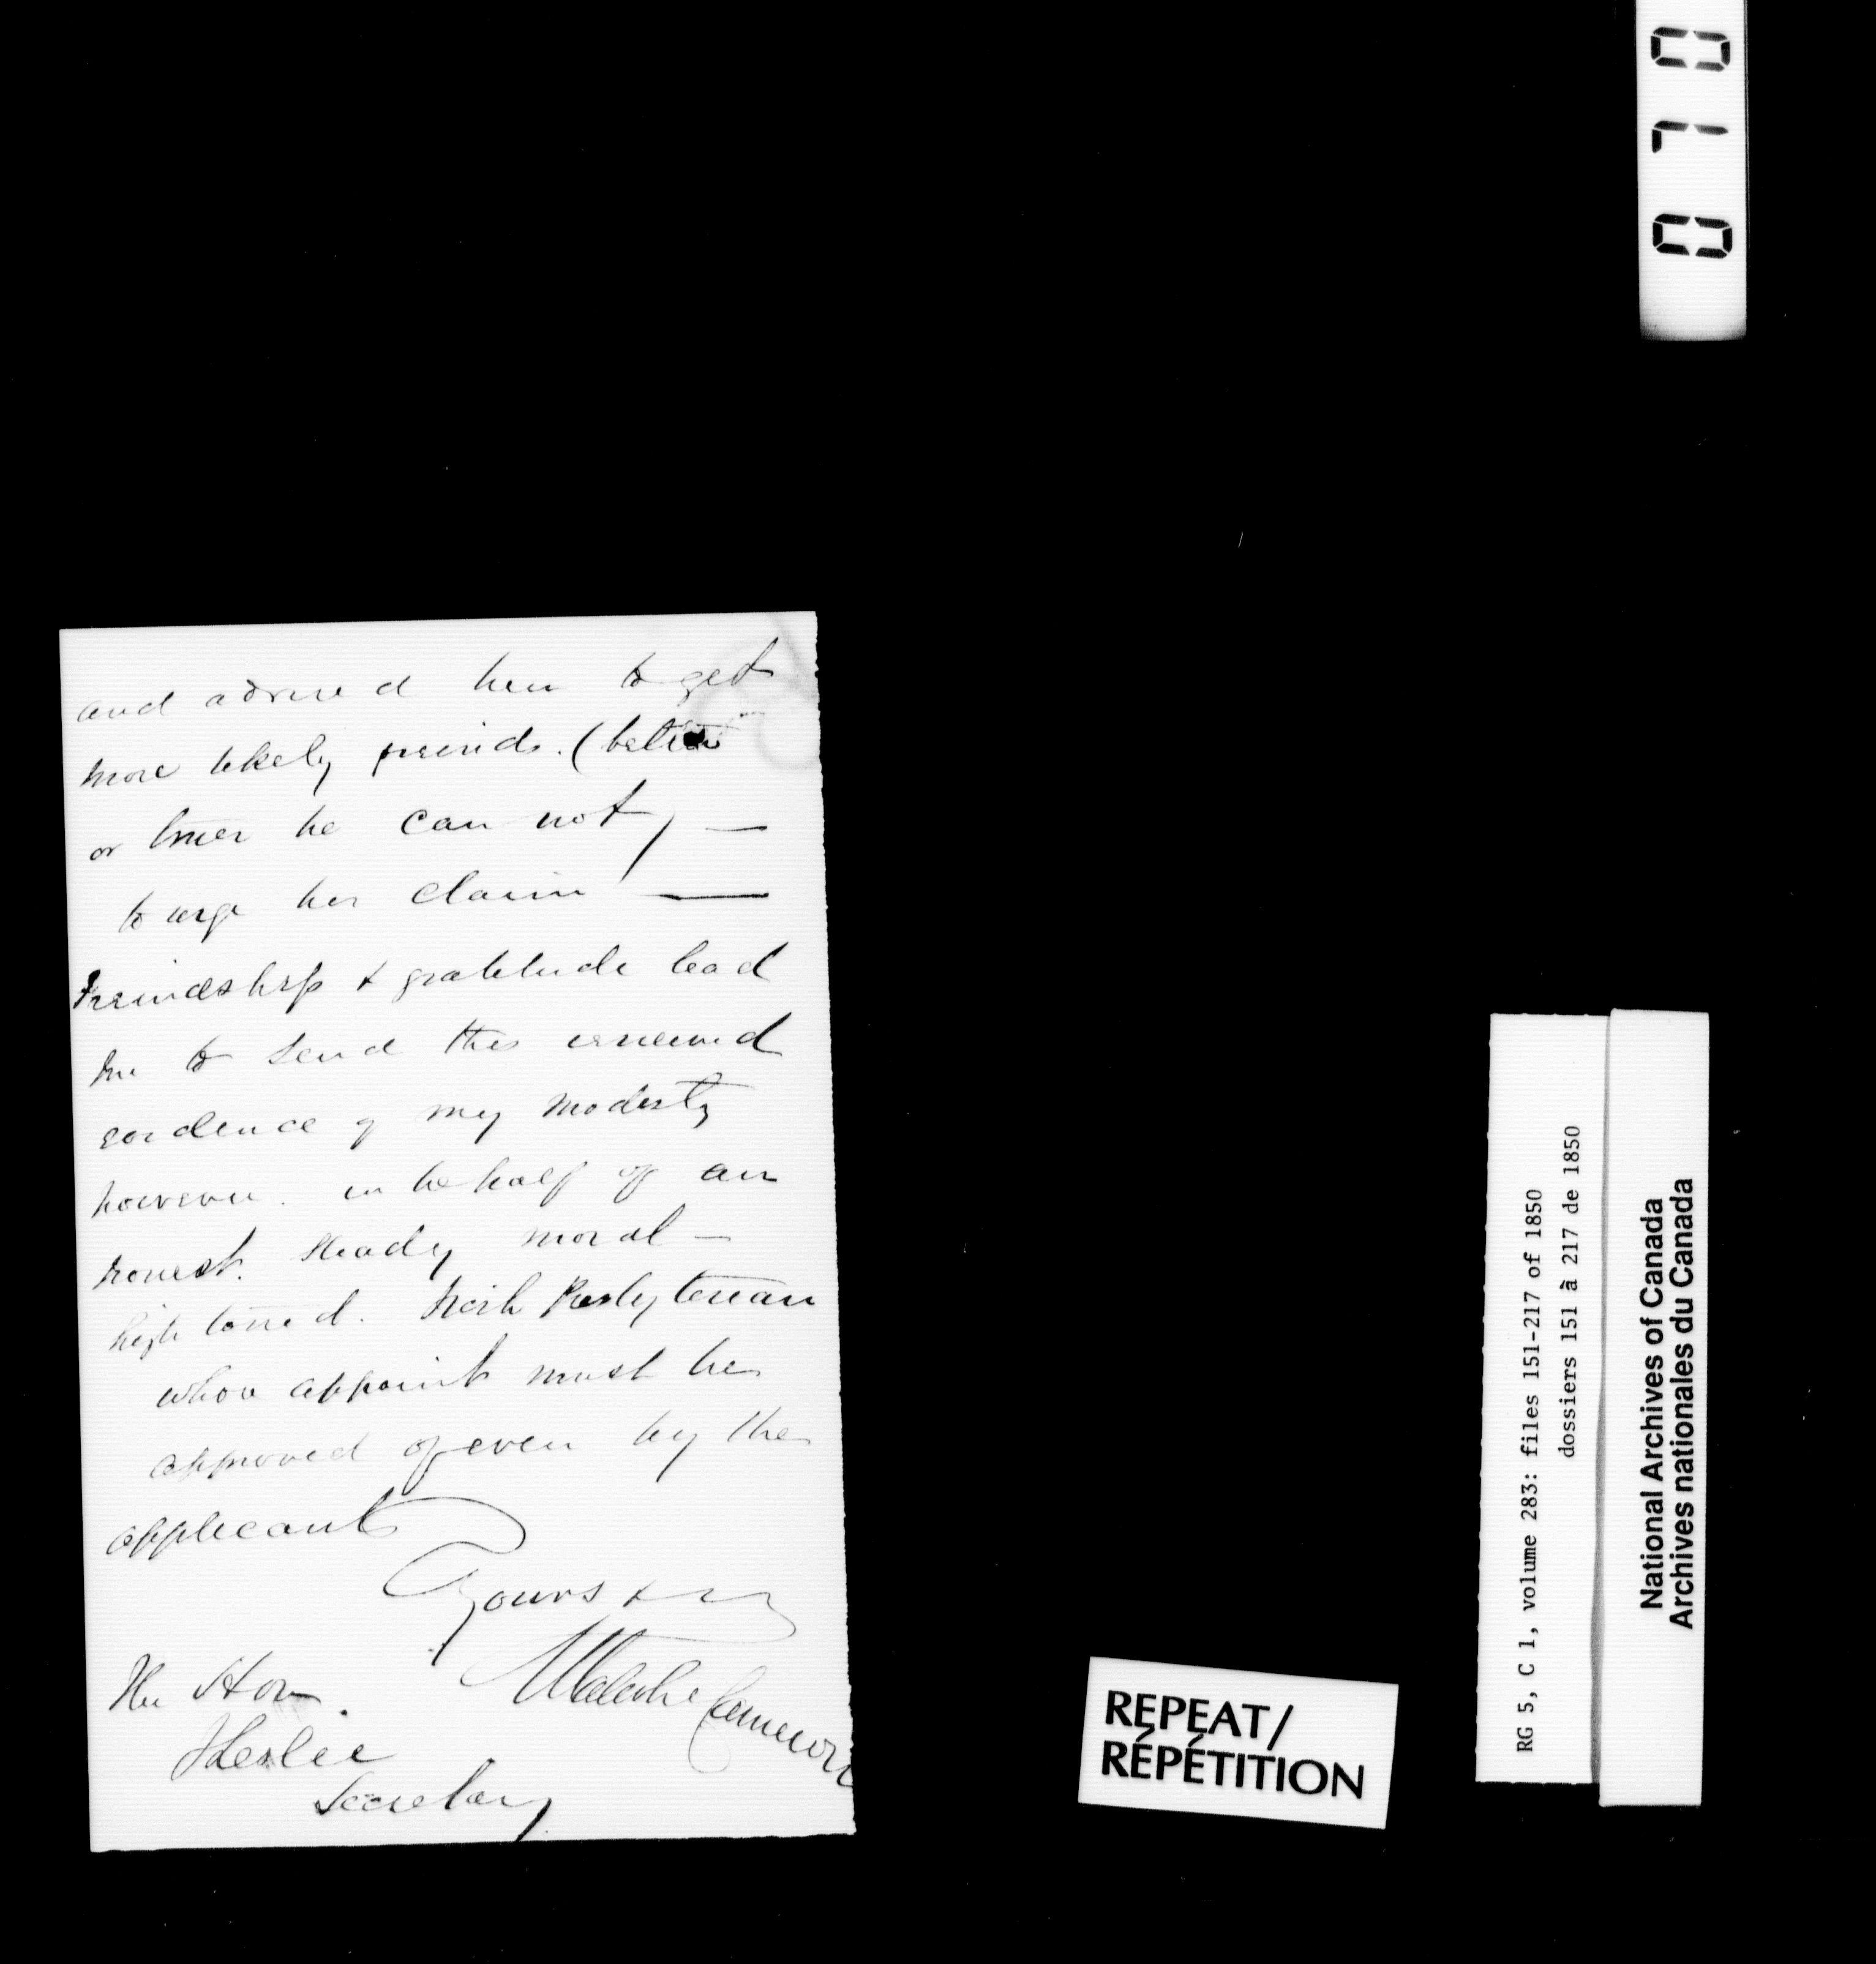 and advised him to get
more likely freinds. (better
or truer he can not) —
to urge his claim —
Freindship & gratitude lead
me to send this renewed
evidence of my modesty
however. in behalf of an
honest. steady moral —
high toned. Irish Presbyterian
whose appoint must be
approved of even by the
applicants
Yours &
Malcolm Cameron
The Hon
J Leslie
Secretary
070
REPEAT/
RÉPÉTITION
RG 5, C 1, volume 283: files 151-217 of 1850
dossiers 151 à 217 de 1850
National Archives of Canada
Archives nationales du Canada